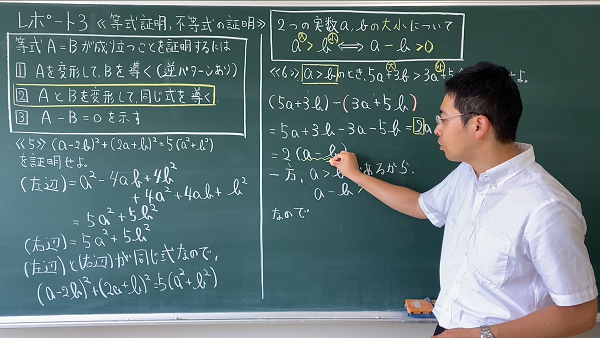 レポート3 ≪等式証明, 不等式の証明≫
等式 A=B が成り立つことを証明するには
1 Aを変形して, Bを導く(逆パターンあり)
2 AとBを変形して, 同じ式を導く
3 A-B=0を示す
≪5≫ (a-2b)²+(2a+b)²=5(a²+b²)
を証明せよ。
(左辺)=a²-4ab+4b²
+4a²+4ab+b²
=5a²+5b²
(右辺)=5a²+5b²
(左辺)と(右辺)が同じ式なので,
(a-2b)²+(2a+b)²=5(a²+b²)
2つの実数a, bの大小について
大 小
a>b⇔a-b>0
≪6≫ a>bのとき, 5a+3b>3a+5
大 小
せよ。
(5a+3b)-(3a+5b)
=5a+3b-3a-5b=2a
=2(a-b)
一方, a>b であるから
a-b>
なので